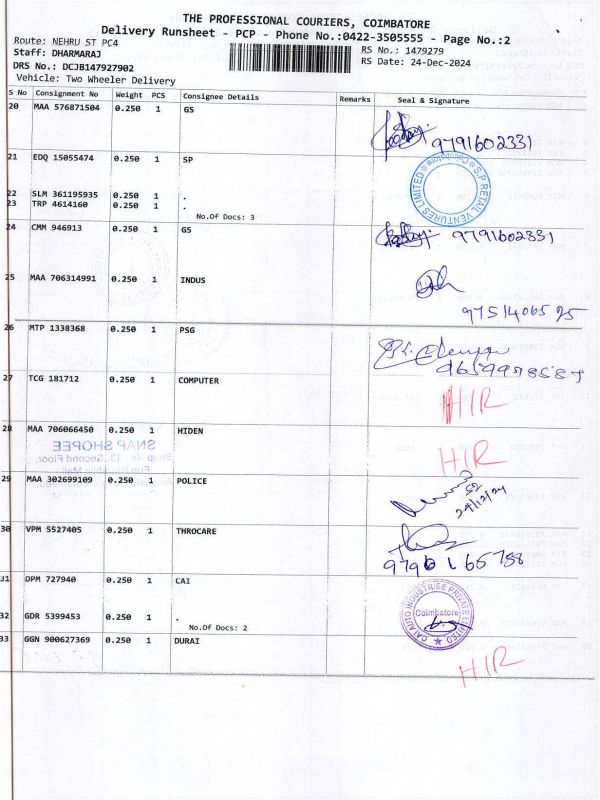 THE PROFESSIONAL COURIERS, COIMBATORE
Delivery Runsheet - PCP - Phone No.:0422-3505555 - Page No.:2
Route: NEHRU ST PC4
Staff: DHARMARAJ
DRS No.: DCJB147927902
Vehicle: Two Wheeler Delivery
RS No.: 1479279
RS Date: 24-Dec-2024
S No Consignment No Weight PCS Consignee Details Remarks Seal & Signature
20 MAA 576871504 0.250 1 GS
9791602331
21 EDQ 15055474 0.250 1 SP
S.P RETAIL VENTURES LIMITED Coimbatore
22 SLM 361195935 0.250 1 .
23 TRP 4614160 0.250 1 .
No.Of Docs: 3
24 CMM 946913 0.250 1 GS
9791602331
25 MAA 706314991 0.250 1 INDUS
9751406525
26 MTP 1338368 0.250 1 PSG
27 TCG 181712 0.250 1 COMPUTER
HIR
28 MAA 706066450 0.250 1 HIDEN
HIR
SNAP SHOPEE
29 MAA 302699109 0.250 1 POLICE
24/12/24
30 VPM 5527405 0.250 1 THROCARE
31 DPM 727940 0.250 1 CAI
CAI AUTO INDUSTRIES PRIVATE LIMITED
Coimbatore
32 GDR 5399453 0.250 1 .
No.Of Docs: 2
33 GGN 900627369 0.250 1 DURAI
HIR